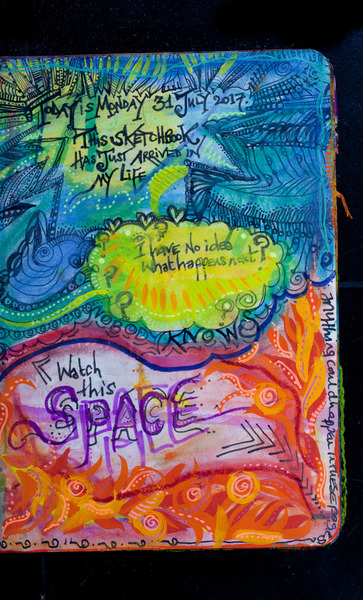 Today is Monday 31 July 2017.
This sketchbook
has just arrived in
my life
I have no idea
what happens next?
KNOWS
Watch
this
SPACE
Anything could happen in these pages